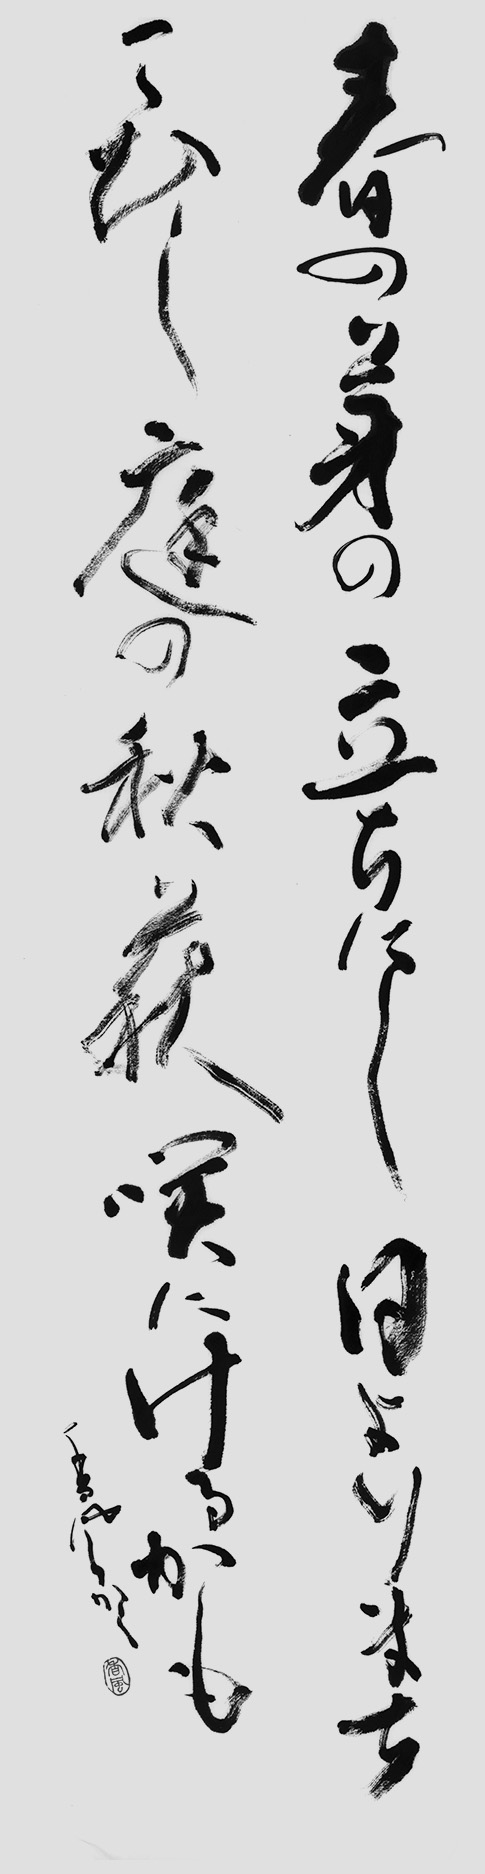 春の芽の立ちにし日よりまち
こひし庭の秋萩咲にけるかも
香風